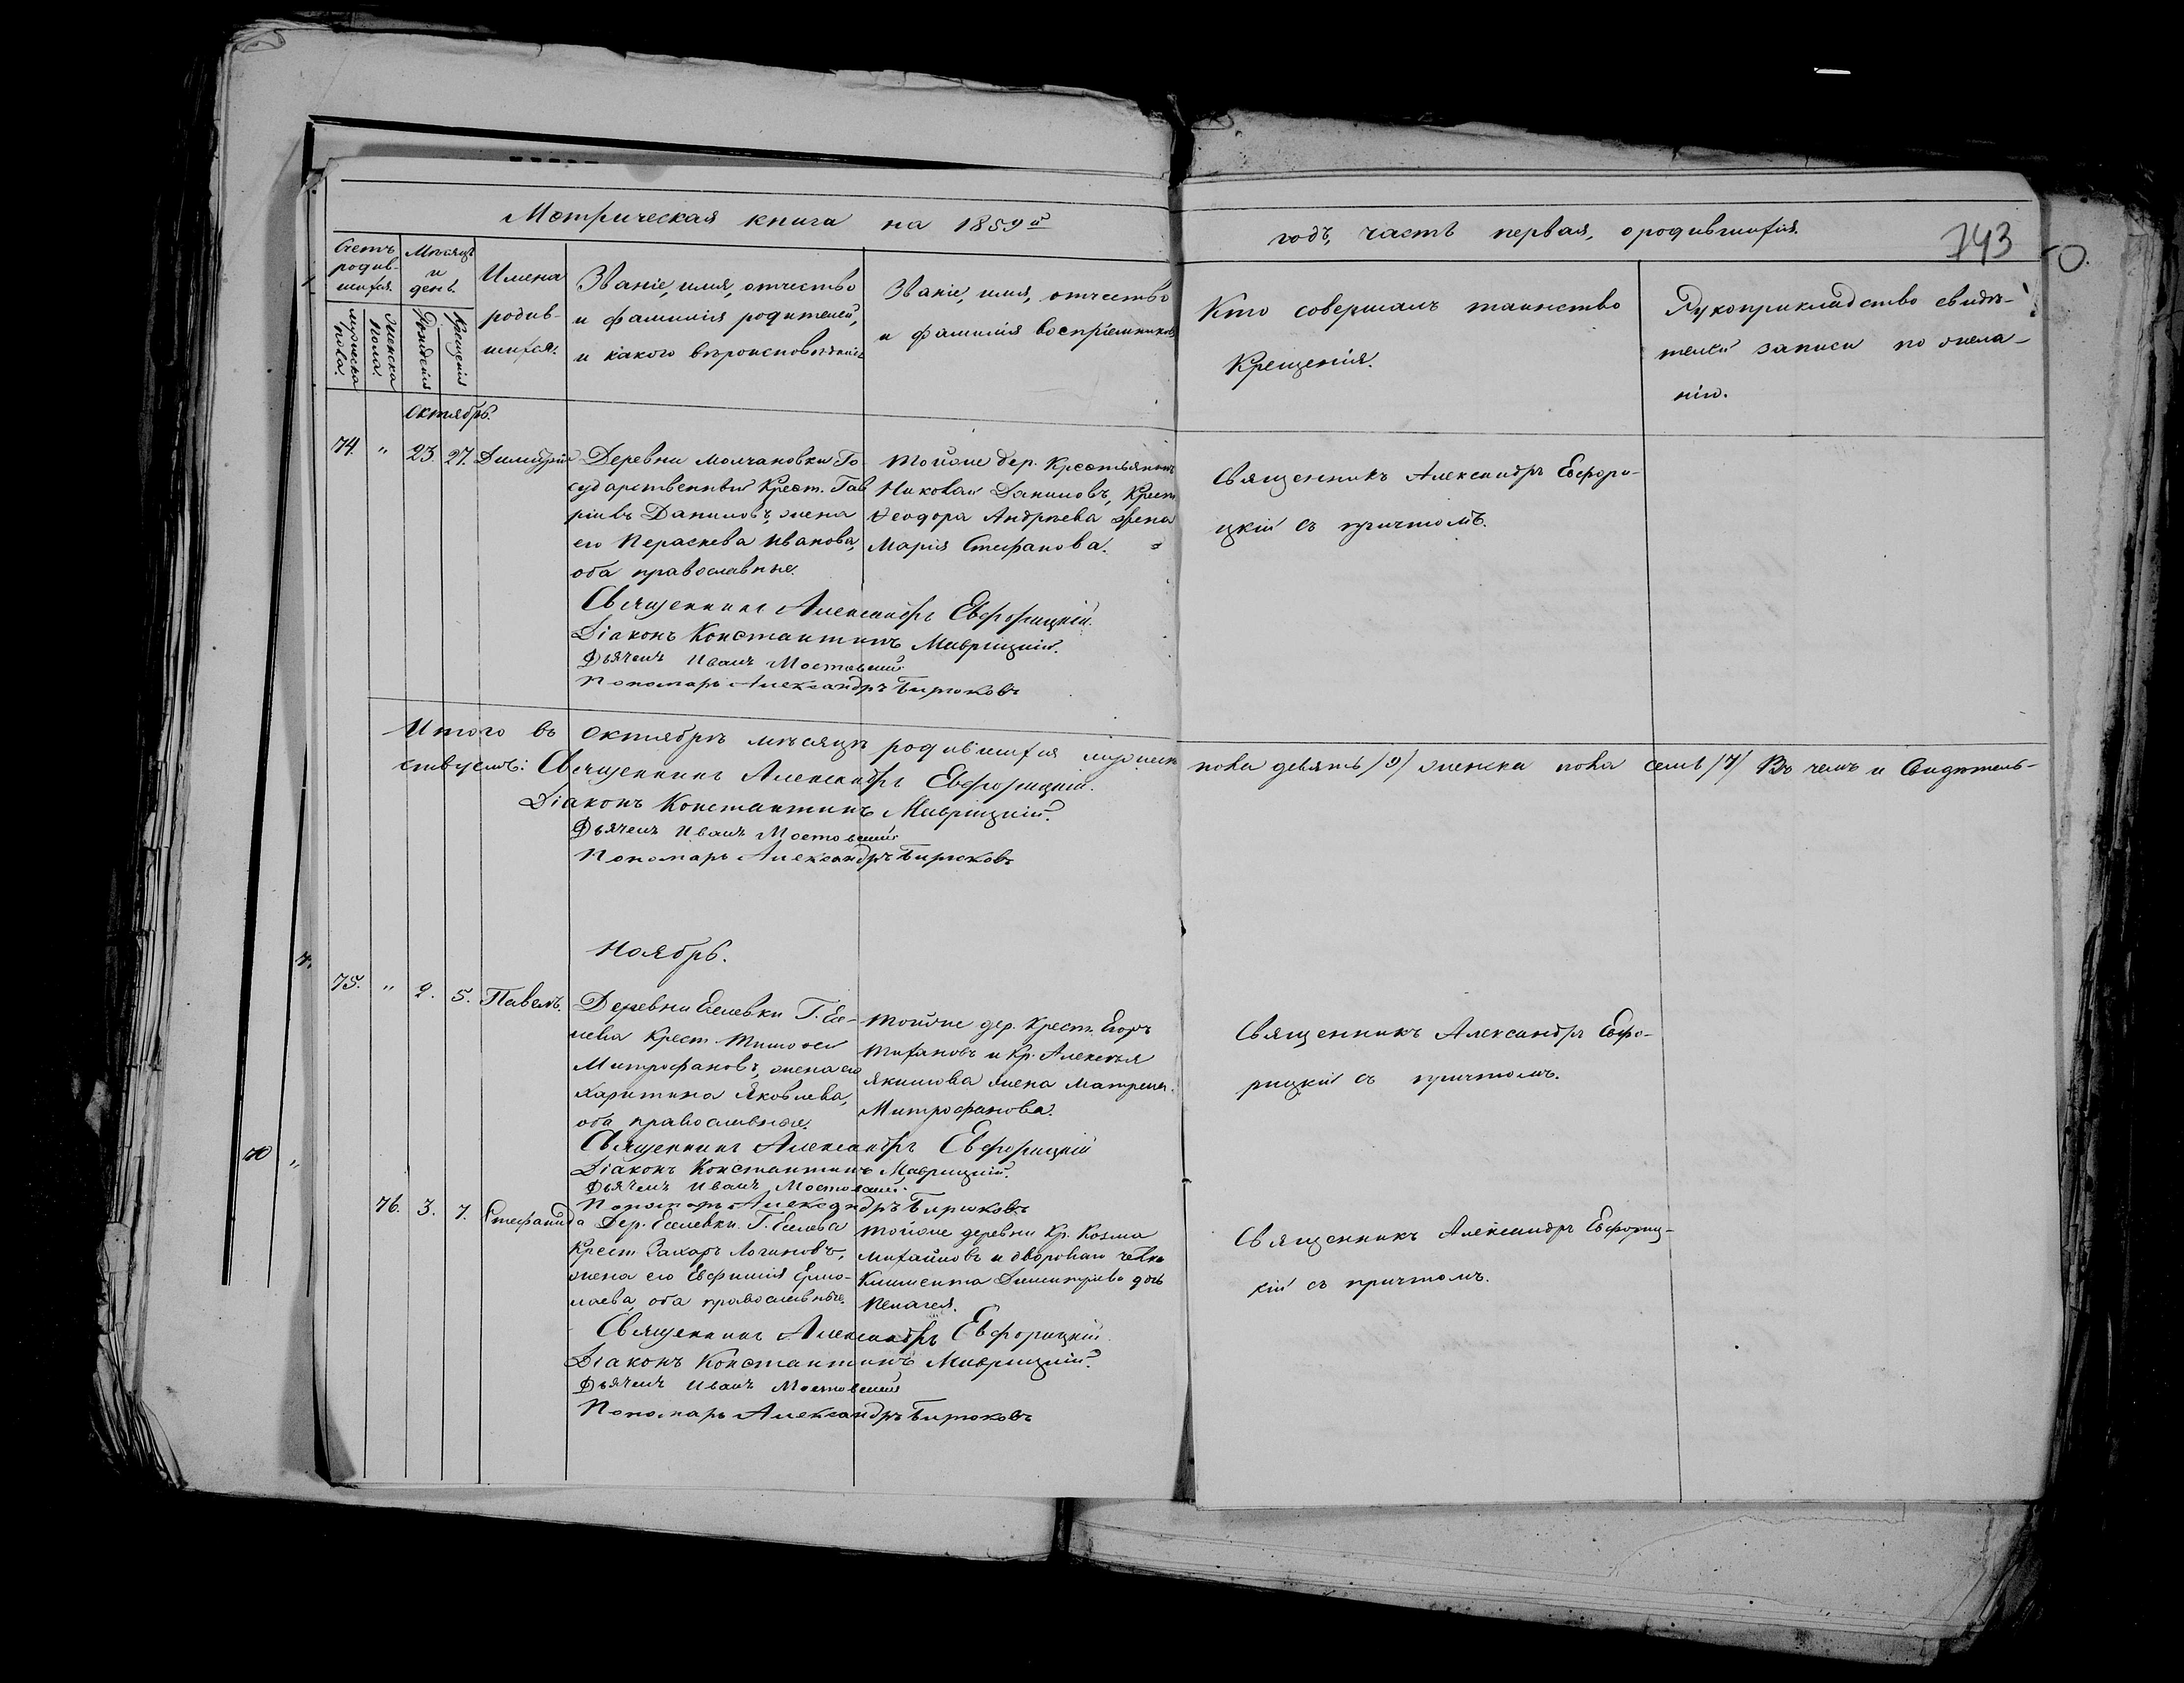 Метрическая книга на 1859й
годъ, часть первая, о родившихся.
743
Счетъ родив-
шихся.
Мѣсяцъ
и
день.
Имена
родив-
шихся.
Званіе, имя, отчество
и фамилія родителей,
и какого вѣроисповѣданія
Званіе, имя, отчество
и фамилія воспріемниковъ
Кто совершалъ таинство
Крещенія.
Рукоприкладство свидѣ-
телей записи по жела-
нію.
мужеска
пола.
Женска
пола.
Рожденія
Крещенія
Октябрь.
74. " 23. 27. Димитрій
Деревни Молчановки Го
сударственный Крест. Гав
ріилъ Даниловъ, жена
его Параскева Иванова,
оба православные.
Тойже дер. Крестьянинъ
Николай Даниловъ, Крест
Ѳеодора Андрѣева жена
Марія Стефанова.
Священникъ Александръ Евфори-
цкій съ причтомъ.
Священникъ Александръ Евфорицкій.
Діаконъ Константинъ Маврицкій.
Дьячекъ Иванъ Мостовскій
Пономарь Александръ Бирюковъ
Итого въ Октябрѣ мѣсяцѣ родившихся мужеска
пола девять /9/ женска пола семь /7/ Въ чемъ и Свидѣтель-
ствуемъ: Священникъ Александръ Евфорицкій.
Діаконъ Константинъ Маврицкій.
Дьячекъ Иванъ Мостовскій
Пономарь Александръ Бирюковъ
Ноябрь.
75. " 2. 5. Павелъ.
Деревни Евлевки Г. Ев-
лева Крест. Тимоѳей
Митрофановъ, жена его
Харитина Яковлева,
оба православные.
Тойже дер. Крест. Егоръ
Тихановъ и Кр. Алексѣя
Якимова жена Матрена
Митрофанова.
Священникъ Александръ Евфо-
рицкій съ причтомъ.
Священникъ Александръ Евфорицкій
Діаконъ Константинъ Маврицкій.
Дьячекъ Иванъ Мостовскій
Пономарь Александръ Бирюковъ
76. 3. 7. Стефанида
Дер. Евлевки Г. Евлева
Крест. Захаръ Логиновъ,
жена его Евфимія Ермо-
лаева, оба православные.
Тойже деревни Кр. Козма
Михайловъ и двороваго челвк
Климента Димитріева дочь
Пелагея.
Священникъ Александръ Евфориц-
кій съ причтомъ.
Священникъ Александръ Евфорицкій
Діаконъ Константинъ Маврицкій.
Дьячекъ Иванъ Мостовскій
Пономарь Александръ Бирюковъ
70 "